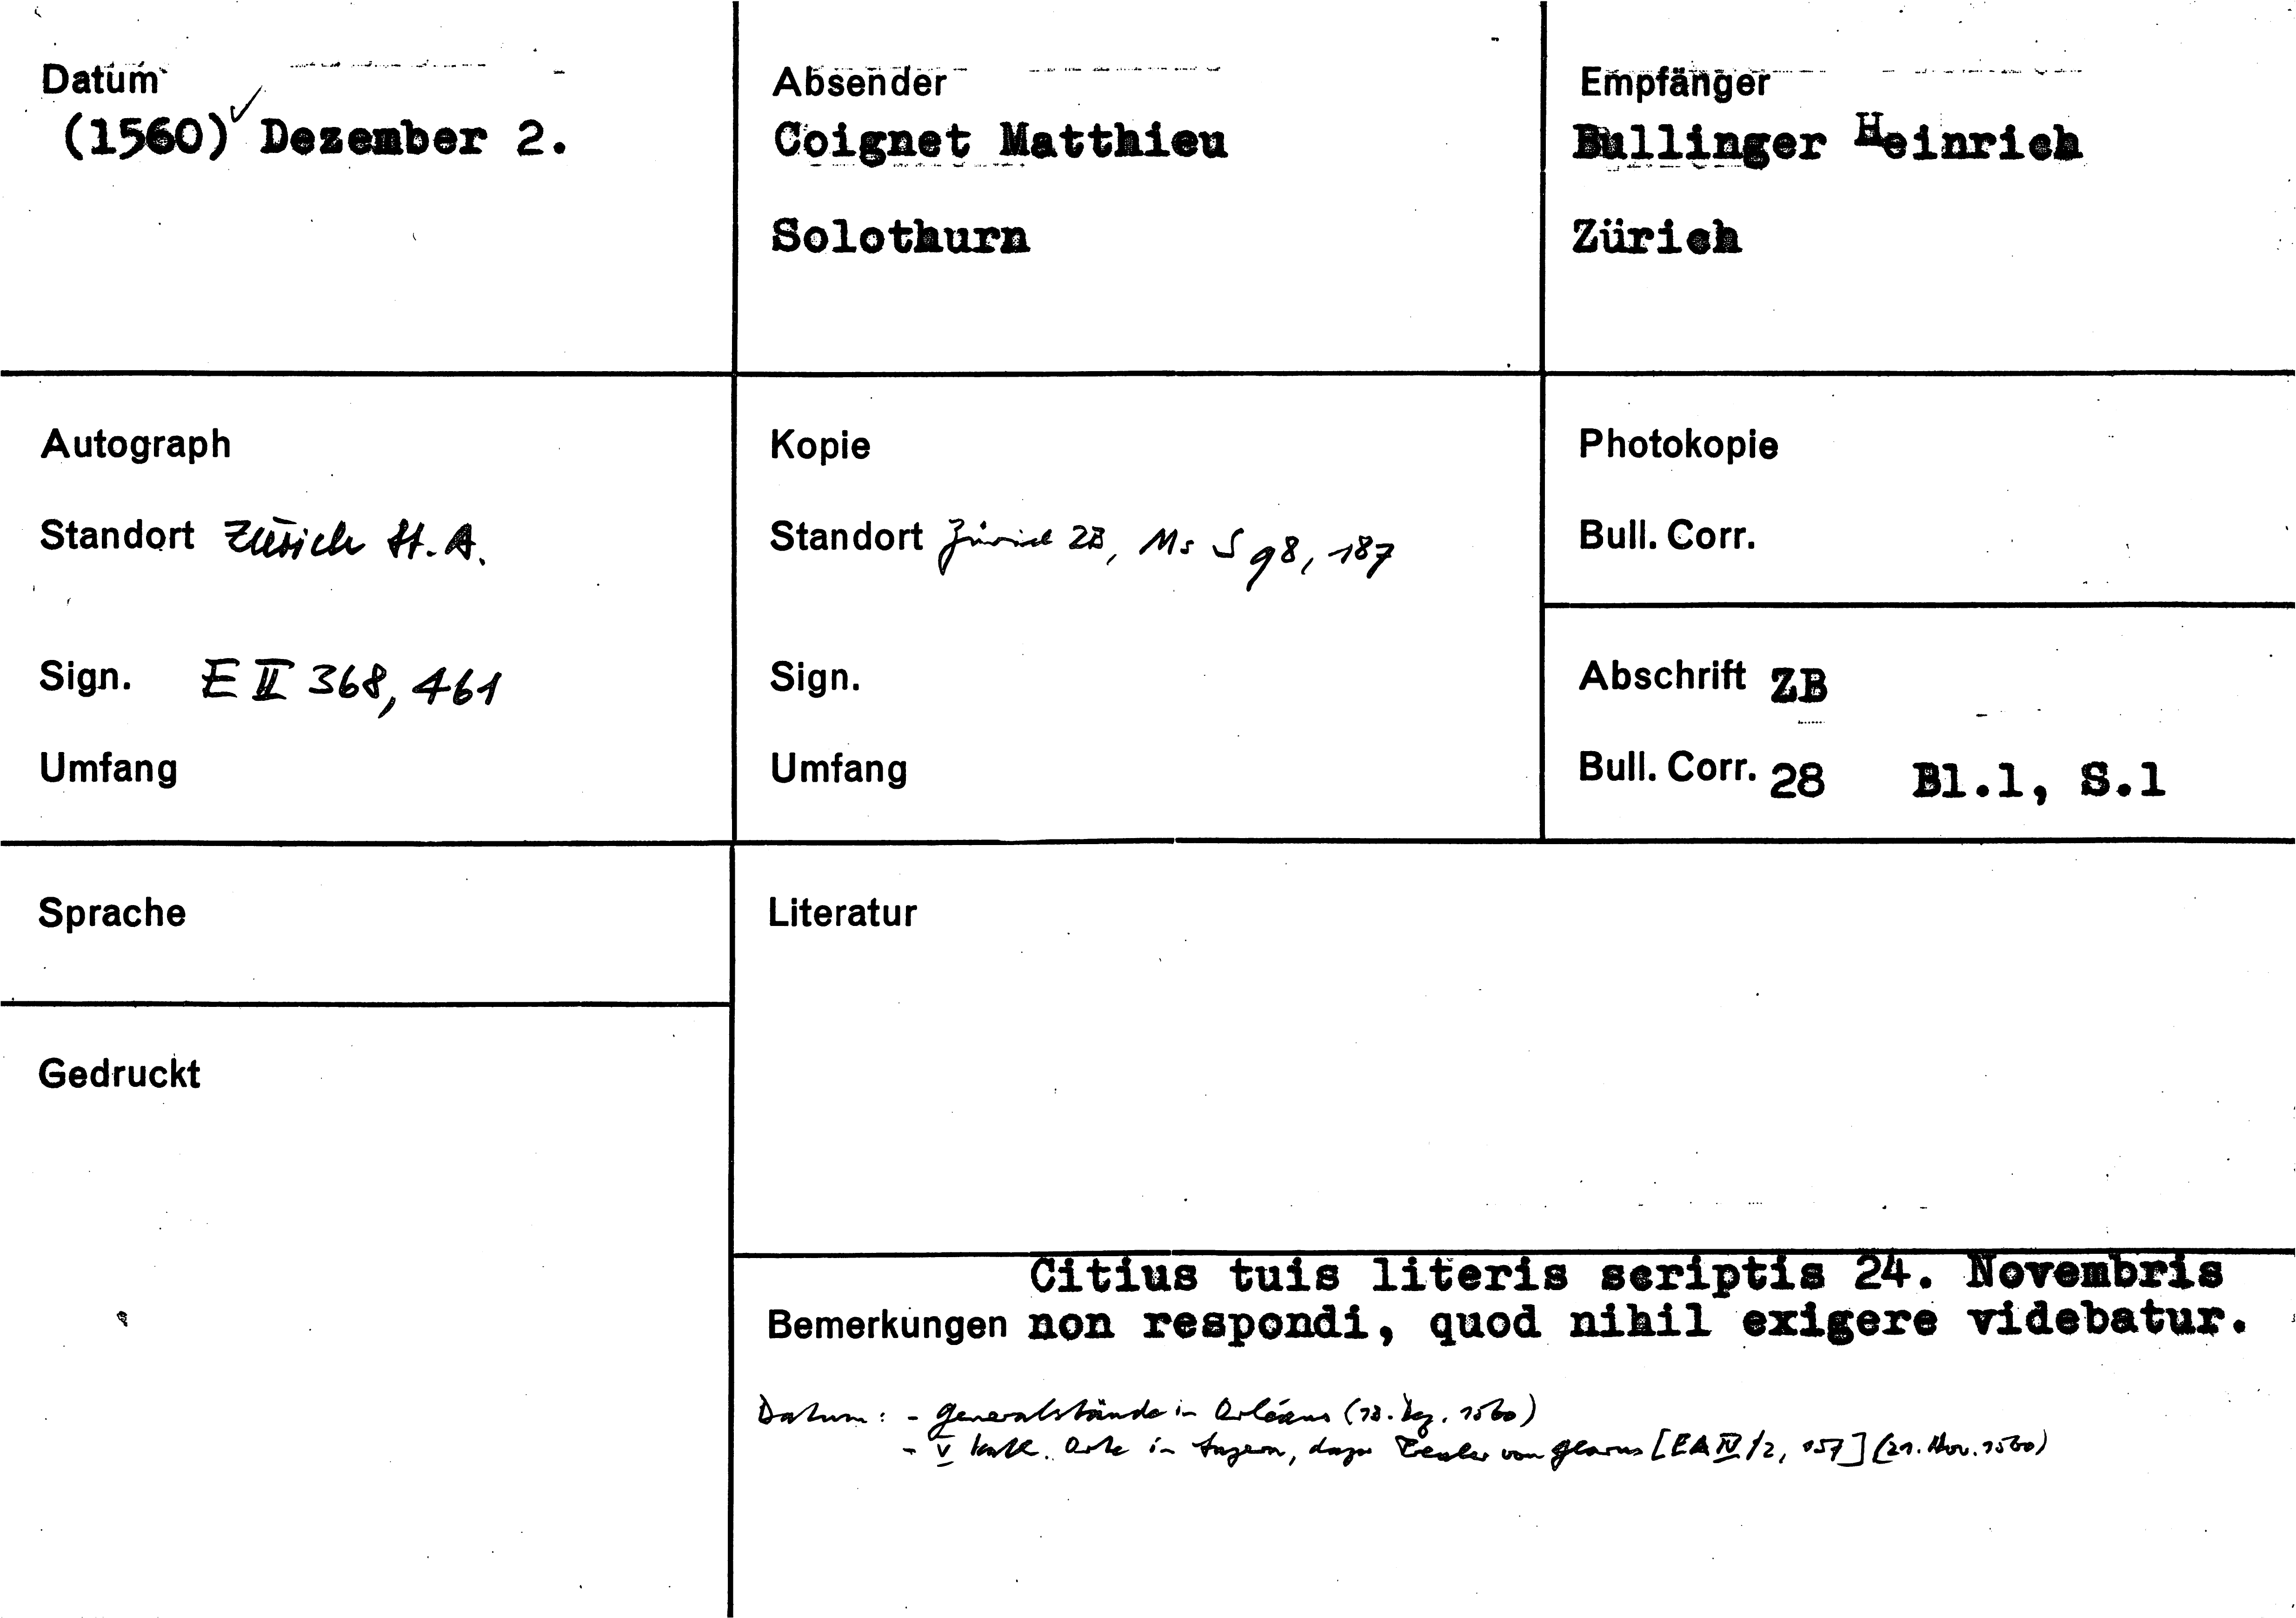 Datum
(1560)✓ Dezember 2.
Absender
Coignet Matthieu
Solothurn
Empfänger
Bullinger Heinrich
Zürich
Autograph
Standort Zürich St. A.
Sign. E II 368, 461
Umfang
Kopie
Standort Zürich ZB, Ms S 98, 187
Sign.
Umfang
Photokopie
Bull. Corr.
Abschrift ZB
Bull. Corr. 28 Bl.1, S.1
Sprache
Gedruckt
Literatur
Citius tuis literis scriptis 24. Novembris
Bemerkungen non respondi, quod nihil exigere videbatur.
Datum: - Generalstände in Orléans (13. Dez. 1560)
- V kath. Orte in Luzern, dazu von Glarus [EA IV/2, 157] (21. Nov. 1560)